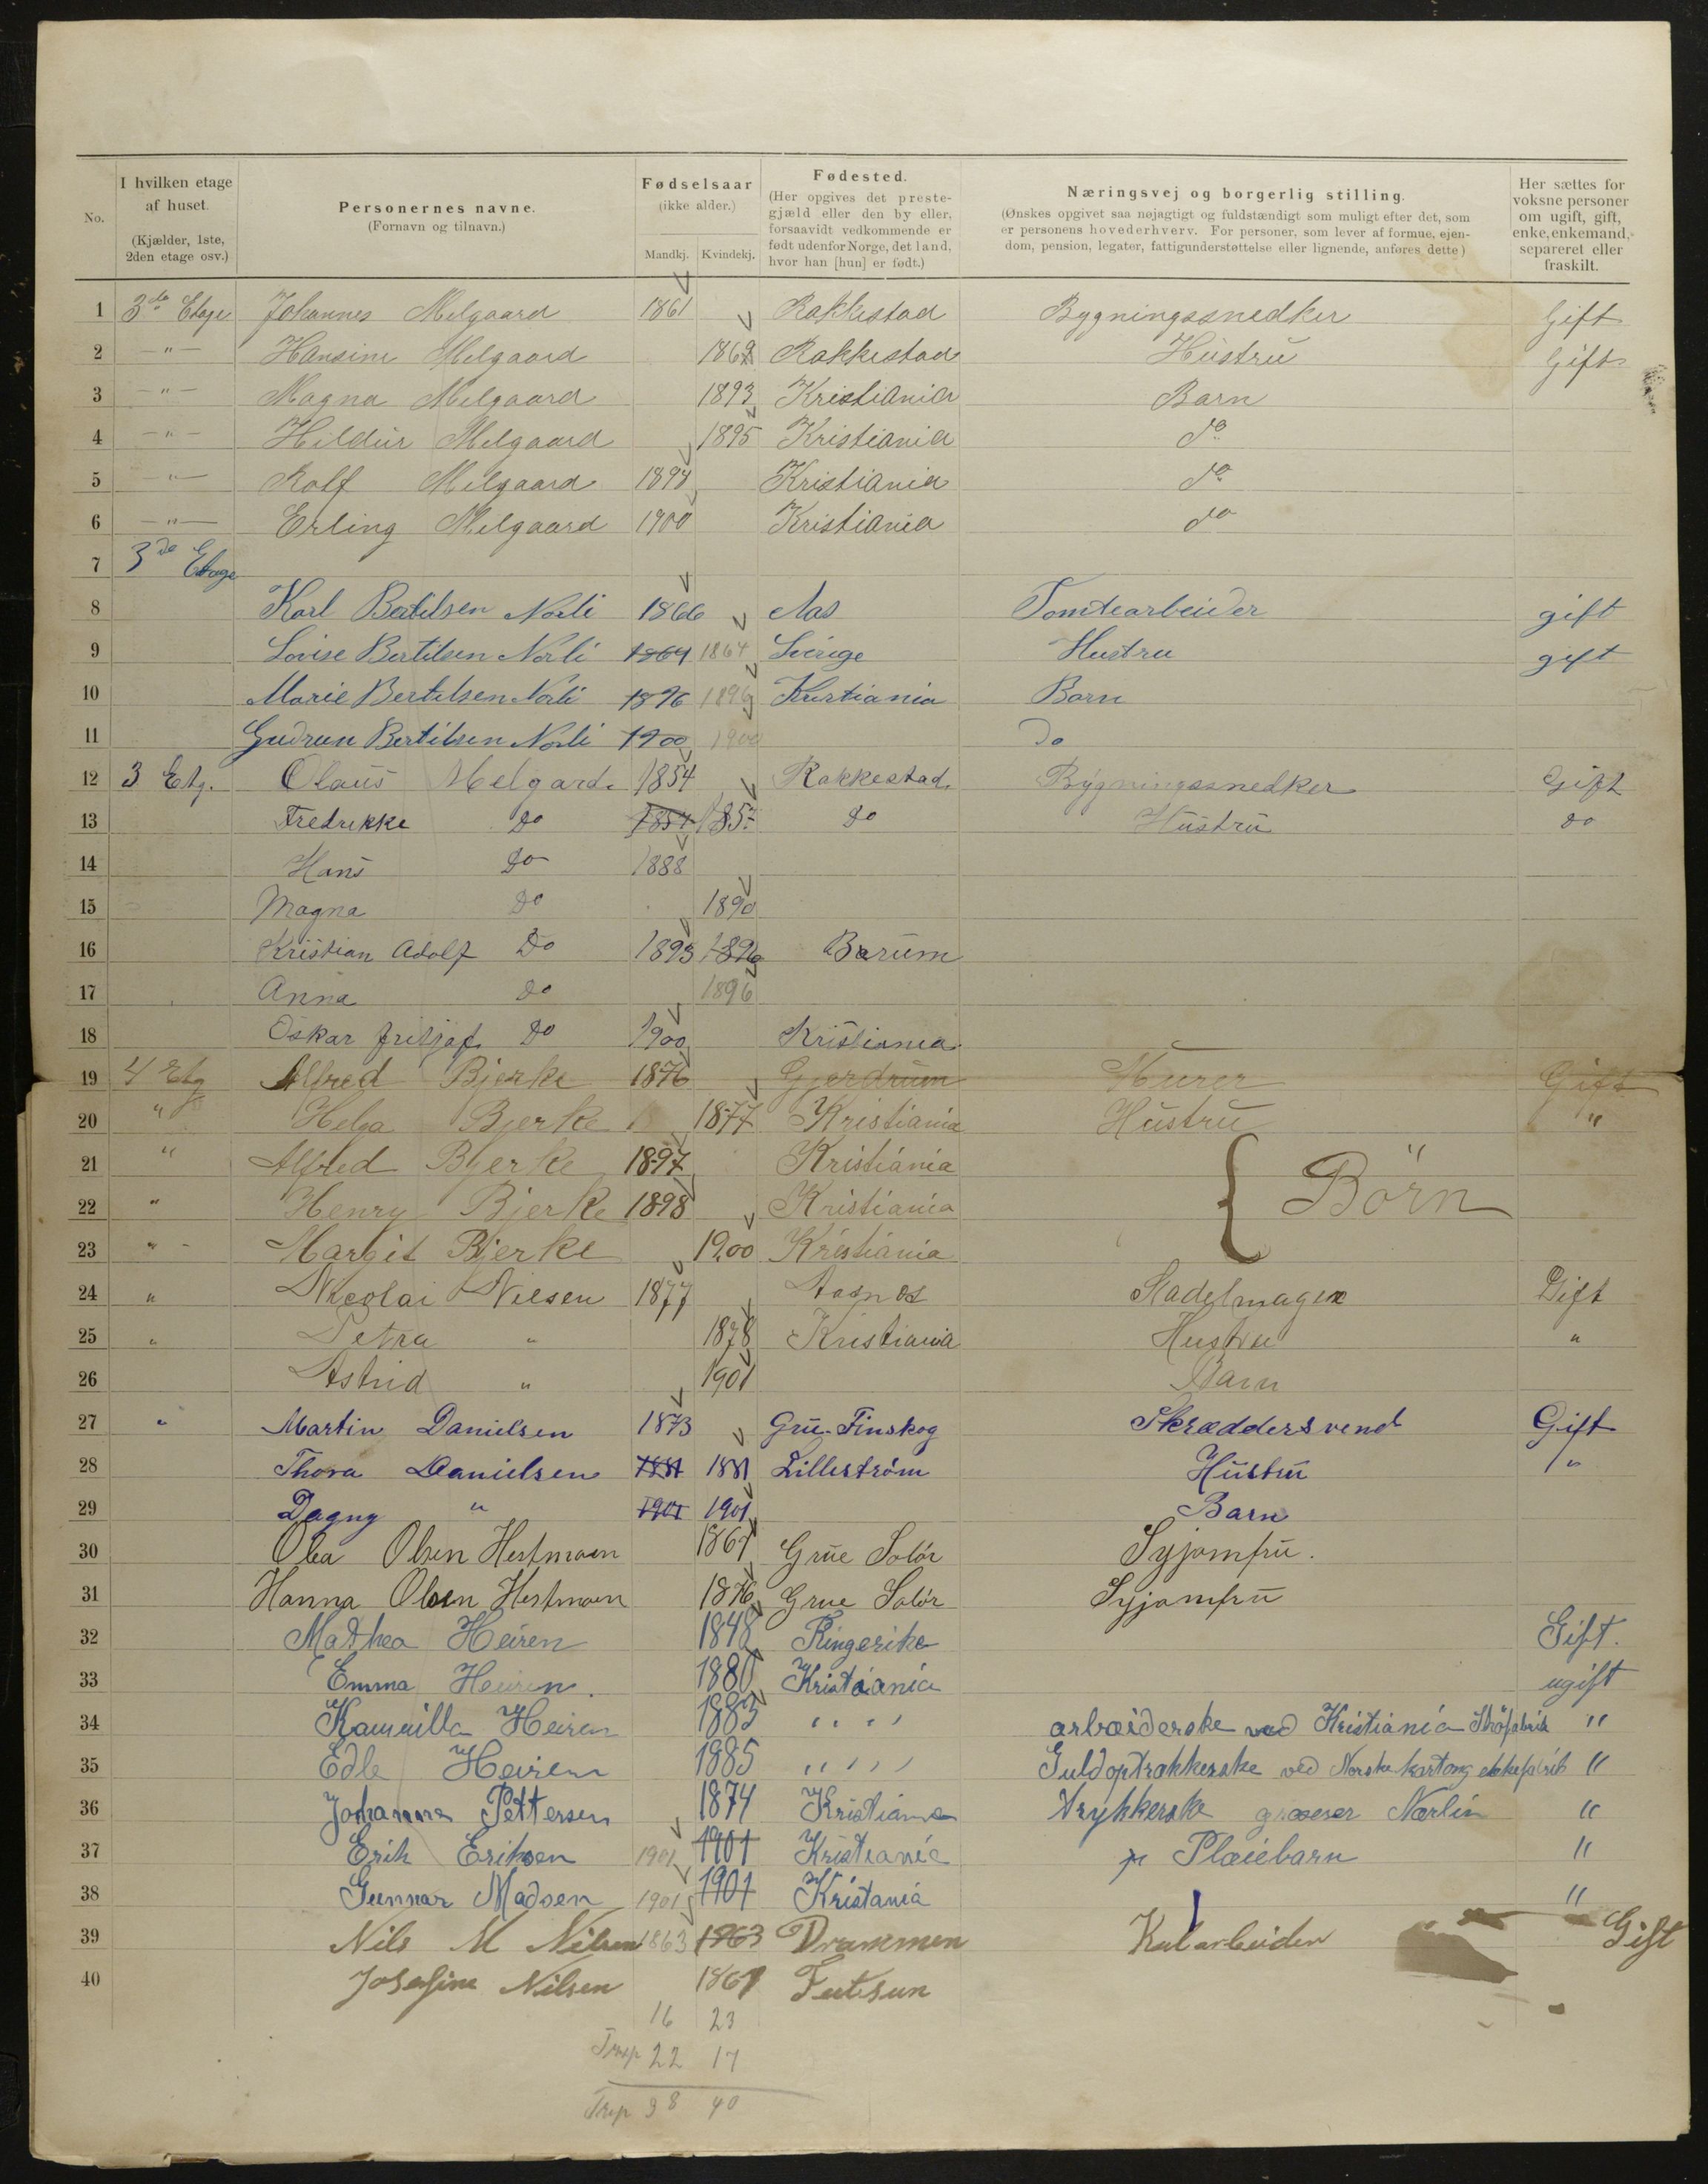 No.
I hvilken etage af huset.
(Kjælder, 1ste, 2den etage osv.)
Personernes navne.
(Fornavn og tilnavn.)
Fødselsaar
(ikke alder.)
Mandkj. Kvindekj.
Fødested.
(Her opgives det preste-
gjæld eller den by eller,
forsaavidt vedkommende er
født udenfor Norge, det land,
hvor han [hun] er født.)
Næringsvej og borgerlig stilling.
(Ønskes opgivet saa nøjagtigt og fuldstændigt som muligt efter det, som
er personens hovederhverv. For personer, som lever af formue, ejen-
dom, pension, legater, fattigunderstøttelse eller lignende, anføres dette)
Her sættes for
voksne personer
om ugift, gift,
enke, enkemand,
separeret eller
fraskilt.
1 3de Etage Johannes Melgaard 1861 Rakkestad Bygningssnedker Gift
2 —"— Hansine Melgaard Rakkestad Hustru Gift
3 —"— Magna Melgaard 1893 Kristiania Barn
4 —"— Hildur Melgaard 1895 Kristiania do
5 —"— Rolf Melgaard Kristiania do
6 —"— Erling Melgaard 1900 Kristiania do
7 3de Etage
8 Karl Bertilsen Norli 1866 Aas Tomtearbeider gift
9 Lovise Bertilsen Norli 1864 1864 Sverige Hustru gift
10 Marie Bertilsen Norli 1896 1896 Kristiania Barn
11 Gudrun Bertilsen Norli 1900 1900 Do
12 3 Etg. Olaus Melgard. 1854 Rakkestad. Bygningssnedker Gift
13 Fredrikke Do Do Hustru Do
14 Hans Do 1888
15 Magna Do 1890
16 Kristian Adolf Do 1893 1896 Bærum
17 Anna Do 1896
18 Oskar Fritjof Do 1900 Kristiania
19 4 Etg Alfred Bjerke 1876 Gjerdrum Murer Gift
20 " Helga Bjerke 1877 Kristiania Hustru "
21 " Alfred Bjerke 1897 Kristiania
22 " Henry Bjerke 1898 Kristiania { Börn
23 " - Margit Bjerke 1900 Kristiania
24 " Nicolai Nilsen 1877 Aasnes Sadelmager Gift
25 " Petra " 1878 Kristiania Hustru "
26 Astrid " 1901 Barn
27 " Martin Danielsen 1873 Grue-Finskog Skræddersvend Gift
28 Thora Danielsen 1881 1881 Lilleström Hustru "
29 Dagny " 1901 1901 Barn
30 Olea Olsen Hestmoen 1867 Grue Solør Syjomfru.
31 Hanna Olsen Hestmoen 1876 Grue Solør Syjomfru
32 Mathea Heiren 1848 Ringerike Gift.
33 Emma Heiren. 1880 Kristiania ugift
34 Kamilla Heiren 1883 " " arbeiderske ved Kristiania Skofabrik "
35 Edle Heiren 1885 " " Guldoptrakkerske ved Norske kartong "
36 Johanne Pettersen 1874 Kristiania trykkerske Nærlin "
37 Erik Eriksen 1901 1901 Kristiania Pleiebarn "
38 Gunnar Madsen 1901 1901 Kristania "
39 Nils M Nilsen 1863 1863 Drammen Kularbeider Gift
40 Josefine Nilsen 1867
16 23
Trsp 22 17
Trsp 38 40